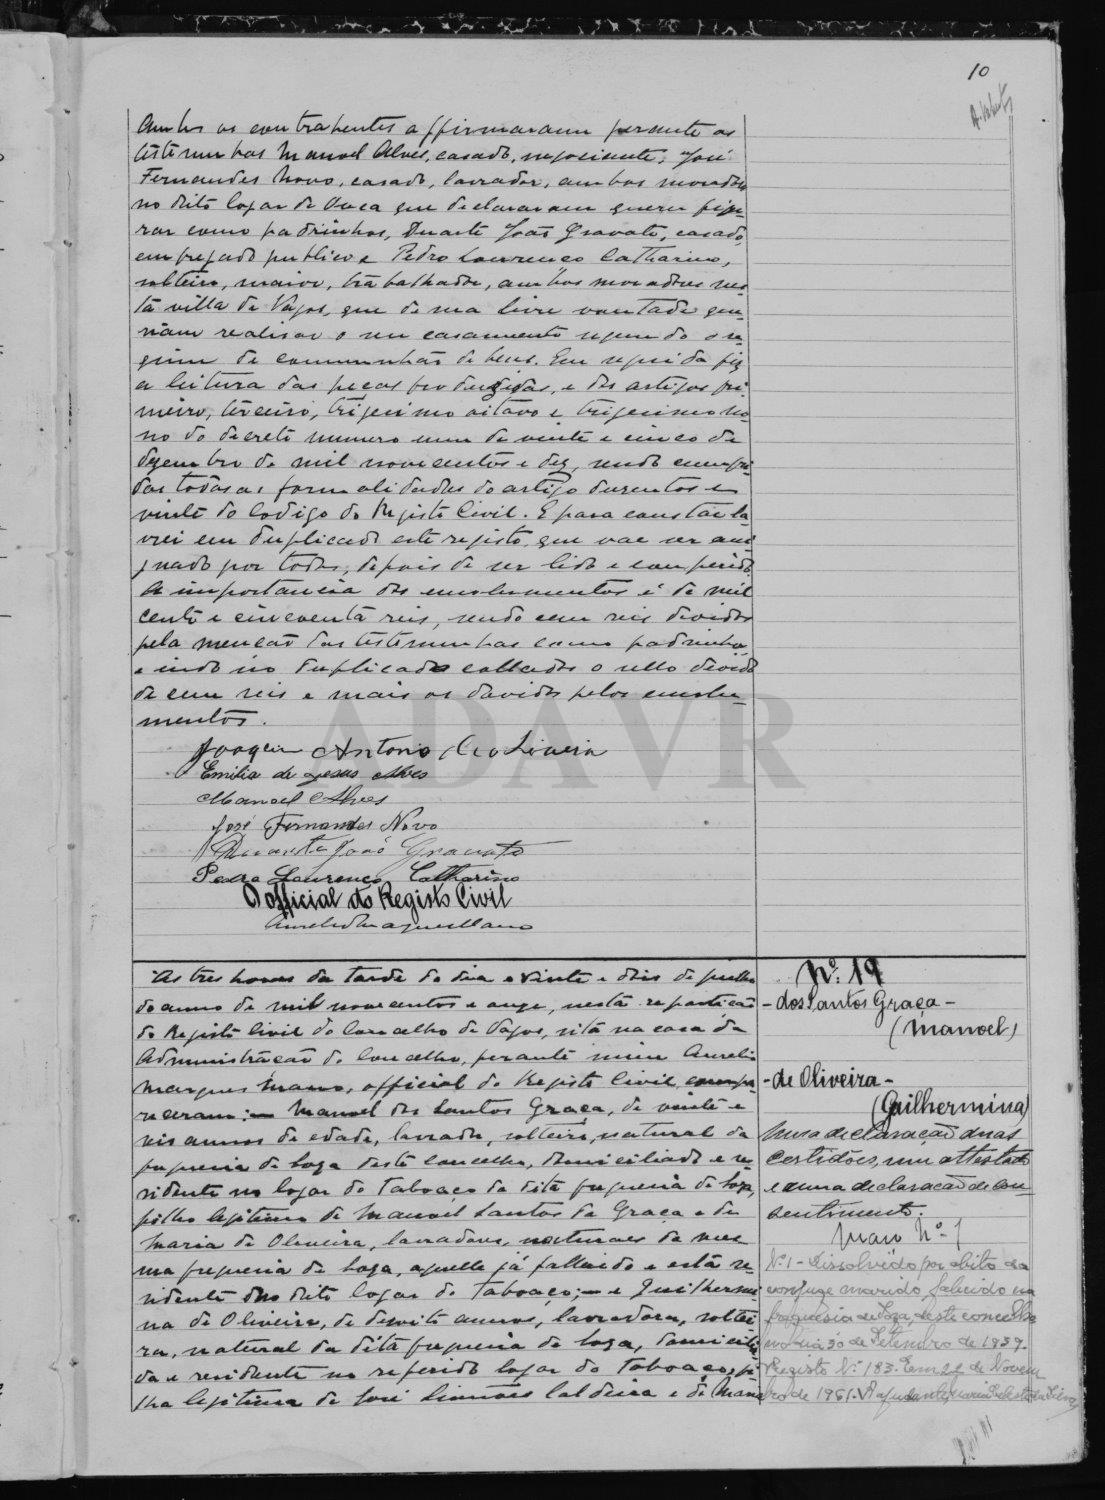 10
Ambos os contrahentes affirmaram perante as
testemunhas Manoel Alves, casado, negociante, José
Fernandes Novo, casado, lavrador, ambos morado
no dito logar de Ouca que declararam querer figu-
rar como padrinhos, Duarte João Gravato, casado,
empregado publico e Pedro Lourenço Catharino,
solteiro, maior, trabalhador, ambos moradores nes-
ta villa de Vagos, que de sua livre vontade que-
riam realisar o seu casamento segundo o re-
gimen de communhão de bens. Em seguida fiz
a leitura das peças produzidas, e dos artigos pri-
meiro, terceiro, trigesimo oitavo e trigesimo no-
no do decreto numero um de vinte e cinco de
dezembro de mil novecentos e dez, sendo cumpri-
das todas as formalidades do artigo duzentos e
vinte do Codigo do Registo Civil. E para constar la-
vrei em duplicado este registo, que vae ser assi-
gnado por todos, depois de ser lido e conferido.
A importancia dos emolumentos é de mil
cento e cincoenta reis, sendo cem reis devidos
pela menção das testemunhas como padrinhos
e indo no duplicado collados o sello devido
de cem reis e mais os devidos pelos emolu-
mentos.
Joaquim Antonio d'Oliveira
Emilia de Jesus Alves
Manoel Alves
José Fernandes Novo
Duarte João Gravato
Pedro Lourenço Catharino
O official do Registo Civil
Aurelio Marques Mano
ADAVR
As tres horas da tarde do dia vinte e dois de julho
do anno de mil novecentos e onze, nesta repartição
do Registo Civil do Concelho de Vagos, sita na casa da
Administração do Concelho, perante mim Aurelio
Marques Mano, official do Registo Civil, compa-
receram: Manoel dos Santos Graça, de vinte e
seis annos de edade, lavrador, solteiro, natural da
freguesia de Soza deste concelho, domiciliado e re-
sidente no logar do Taboaço da dita freguesia de Soza,
filho legitimo de Manoel Santos da Graça e de
Maria de Oliveira, lavradores, naturaes da mes-
ma freguesia de Soza, aquelle já fallecido e esta re-
sidente no dito logar do Taboaço; e Guilhermi-
na de Oliveira, de dezoito annos, lavradora, soltei-
ra, natural da dita freguesia de Soza, domicilia-
da e residente no referido logar do Taboaço, fi-
lha legitima de José Simões Caldeira e de Maria
Nº 19
- dos Santos Graça -
(Manoel)
- de Oliveira -
(Guilhermina)
Uma declaração duas
certidões, um attestado
e uma declaração de con-
sentimento.
Maço Nº 1
Nº 1 - Dissolvido por obito do
conjuge marido, falecido na
freguesia de Soza, deste concelho
no dia 30 de Setembro de 1937.
Registo Nº 183. Em 22 de Novem
bro de 1961. A ajudante, Maria Celeste da Silva